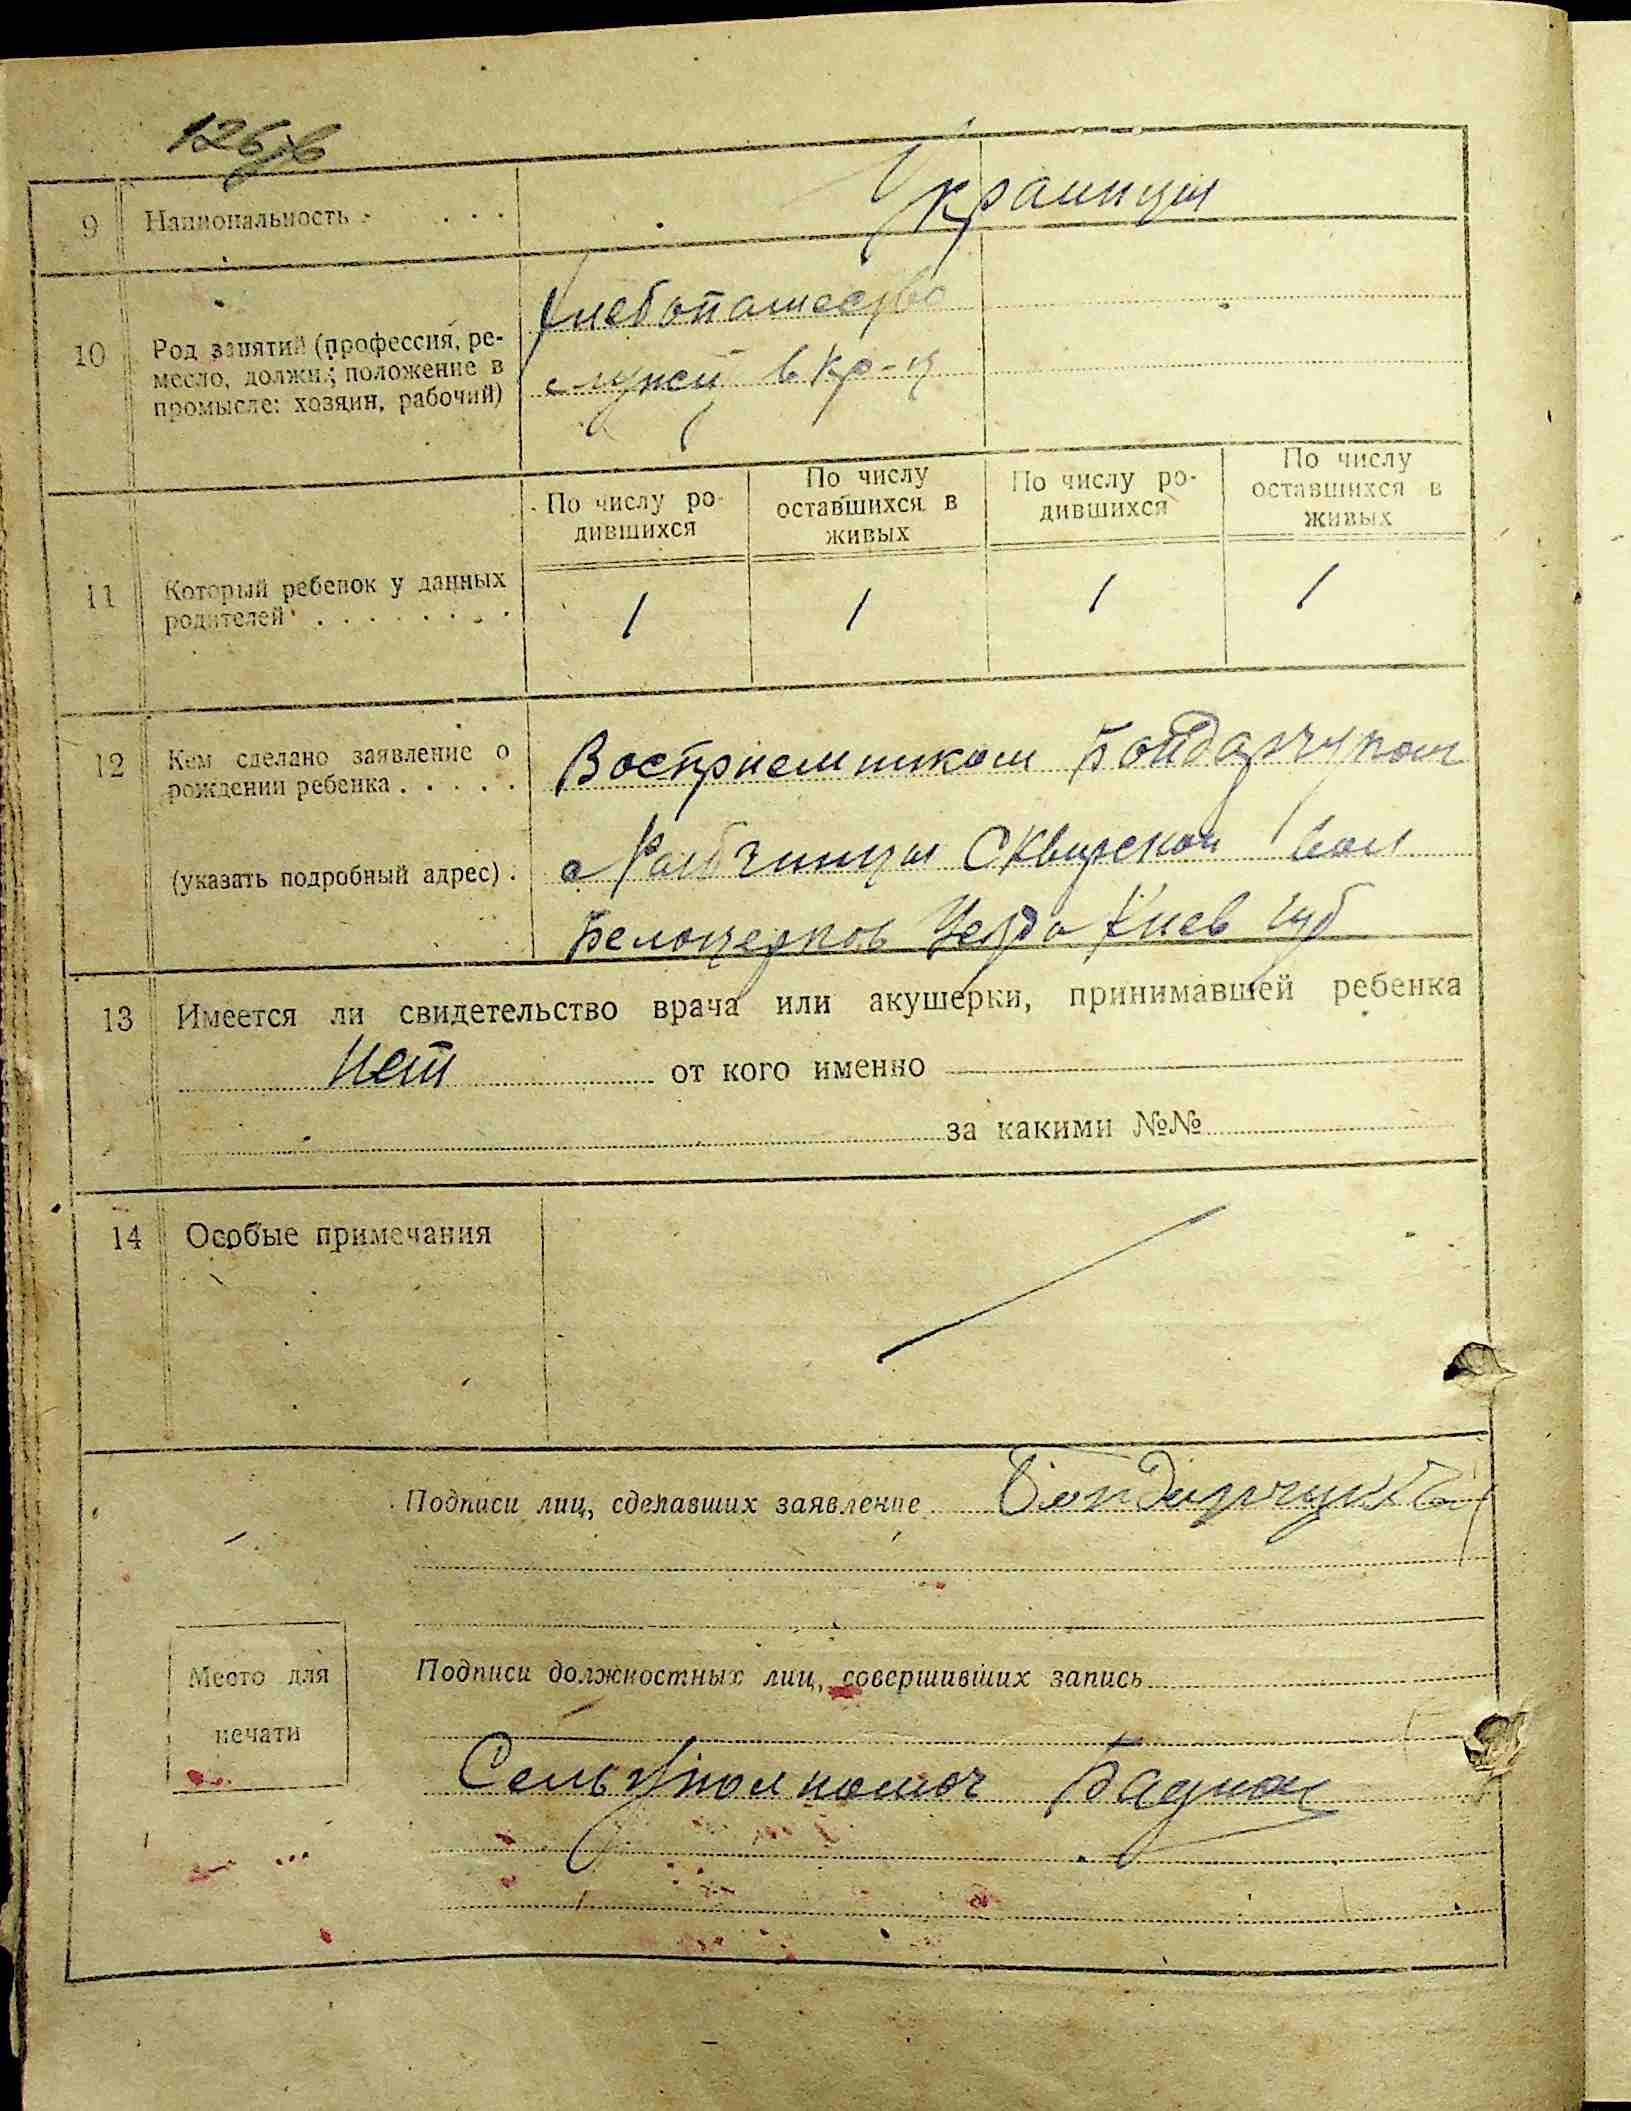 9 Национальность . . . . Украинцы
10 Род занятий (профессия, ре-
месло, должн.; положение в
промысле: хозяин, рабочий)
Хлебопашество
служит в Кр-й
По числу ро-
дившихся
По числу
оставшихся в
живых
По числу ро-
дившихся
По числу
оставшихся в
живых
11 Который ребенок у данных
родителей . . . . . . . .
1 1 1 1
12 Кем сделано заявление о
рождении ребенка . . . . .
(указать подробный адрес) .
Восприемником Бондарчуком
Сквирской вол
Белоцерков Уезда Киев губ
13 Имеется ли свидетельство врача или акушерки, принимавшей ребенка
Нет от кого именно
за какими №№
14 Особые примечания
Подписи лиц, сделавших заявление Бондарчук
Место для
печати
Подписи должностных лиц, совершивших запись
Сельуполномоч